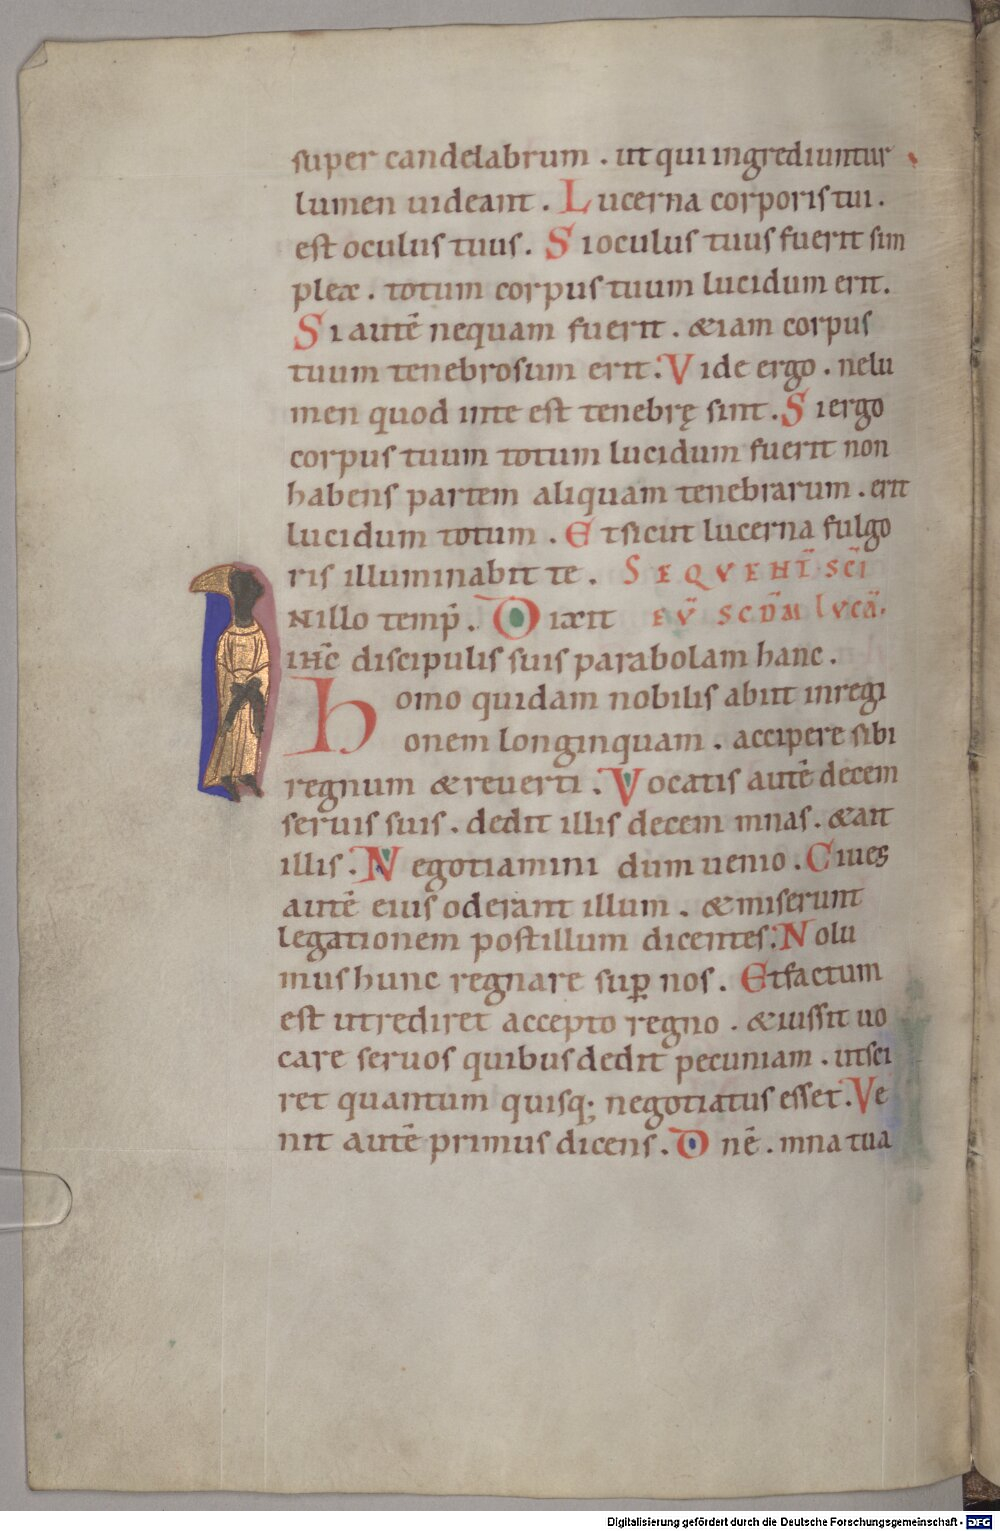 super candelabrum . ut qui ingrediuntur
lumen uideant . Lucerna corporis tui .
est oculus tuus . Si oculus tuus fuerit sim
plex . totum corpus tuum lucidum erit .
Si autē nequam fuerit . &iam corpus
tuum tenebrosum erit . Vide ergo . ne lu
men quod inte est tenebrę sint . Si ergo
corpus tuum totum lucidum fuerit non
habens partem aliquam tenebrarum . erit
lucidum totum . Et sicut lucerna fulgo
ris illuminabit te . SEQVENT̄ SC̄I
IN illo temp̄ . Dixit EV̄ SCD̄M LVCĀ .
iħc discipulis suis parabolam hanc .
homo quidam nobilis abiit in regi
onem longinquam . accipere sibi
regnum & reuerti . Vocatis autē decem
seruis suis . dedit illis decem mnas . & ait
illis . Negotiamini dum uenio . Ciues
autē eius oderant illum . & miserunt
legationem post illum dicentes . Nolu
mus hunc regnare sup̄ nos . Et factum
est ut rediret accepto regno . & iussit uo
care seruos quibus dedit pecuniam . ut sci
ret quantum quisq; negotiatus esset . Ve
nit autē primus dicens . Dnē . mna tua
Digitalisierung gefördert durch die Deutsche Forschungsgemeinschaft - DFG